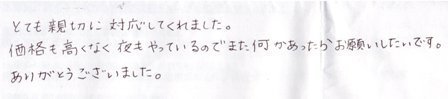 とても親切に対応してくれました。
価格も高くなく夜もやっているのでまた何かあったらお願いしたいです。
ありがとうございました。